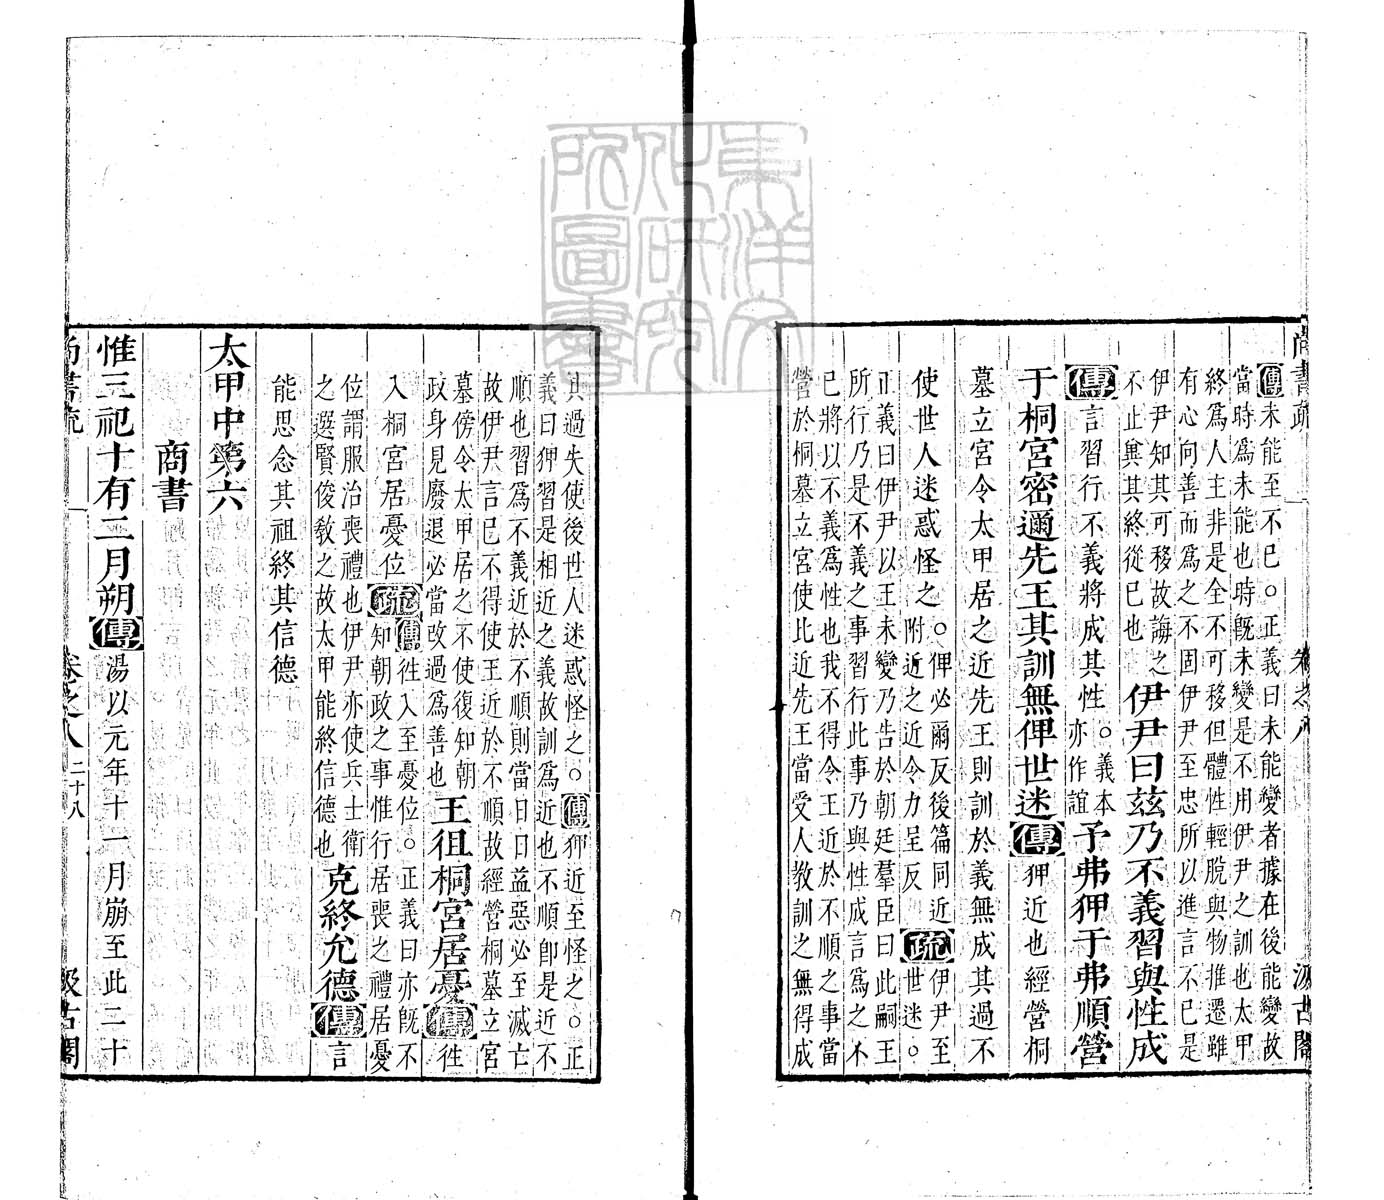 尚書疏 卷之八 汲古閣
傳未能至不已。正義曰未能變者據在後能變故
當時爲未能也時旣未變是不用伊尹之訓也太甲
終爲人主非是全不可移但體性輕脫與物推遷雖
有心向善而爲之不固伊尹至忠所以進言不已是
伊尹知其可移故誨之
不止冀其終從已也
伊尹曰茲乃不義習與性成
傳言習行不義將成其性
。義本
亦作誼
予弗狎于弗順營
于桐宮密邇先王其訓無俾世迷傳狎近也經營桐
墓立宮令太甲居之近先王則訓於義無成其過不
使世人迷惑怪之
。俾必爾反後篇同近
附近之近令力呈反
疏
伊尹至
世迷。
正義曰伊尹以王未變乃告於朝廷羣臣曰此嗣王
所行乃是不義之事習行此事乃與性成言爲之不
已將以不義爲性也我不得令王近於不順之事當
營於桐墓立宮使比近先王當受人教訓之無得成
其過失使後世人迷惑怪之。傳狎近至怪之。正
義曰狎習是相近之義故訓爲近也不順卽是近不
順也習爲不義近於不順則當日日益惡必至滅亡
故伊尹言已不得使王近於不順故經營桐墓立宮
墓傍令太甲居之不使復知朝
政身見廢退必當改過爲善也
王徂桐宮居憂傳徃
入桐宮居憂位疏
傳徃入至憂位。正義曰亦旣不
知朝政之事惟行居喪之禮居憂
位謂服治喪禮也伊尹亦使兵士衛
之選賢俊敎之故太甲能終信德也
克終允德傳言
能思念其祖終其信德
太甲中第六
商書
惟三祀十有二月朔傳湯以元年十一月崩至此二十
尚書疏 卷之八 二十八 汲古閣
東洋文
化研究
所圖書